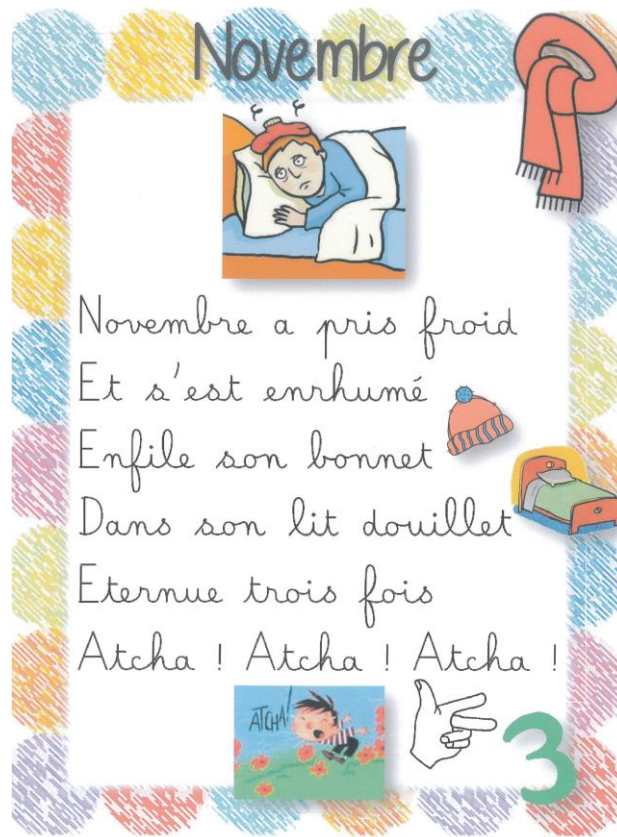 Novembre
Novembre a pris froid
Et s'est enrhumé
Enfile son bonnet
Dans son lit douillet
Eternue trois fois
Atcha ! Atcha ! Atcha !
ATCHA!
3